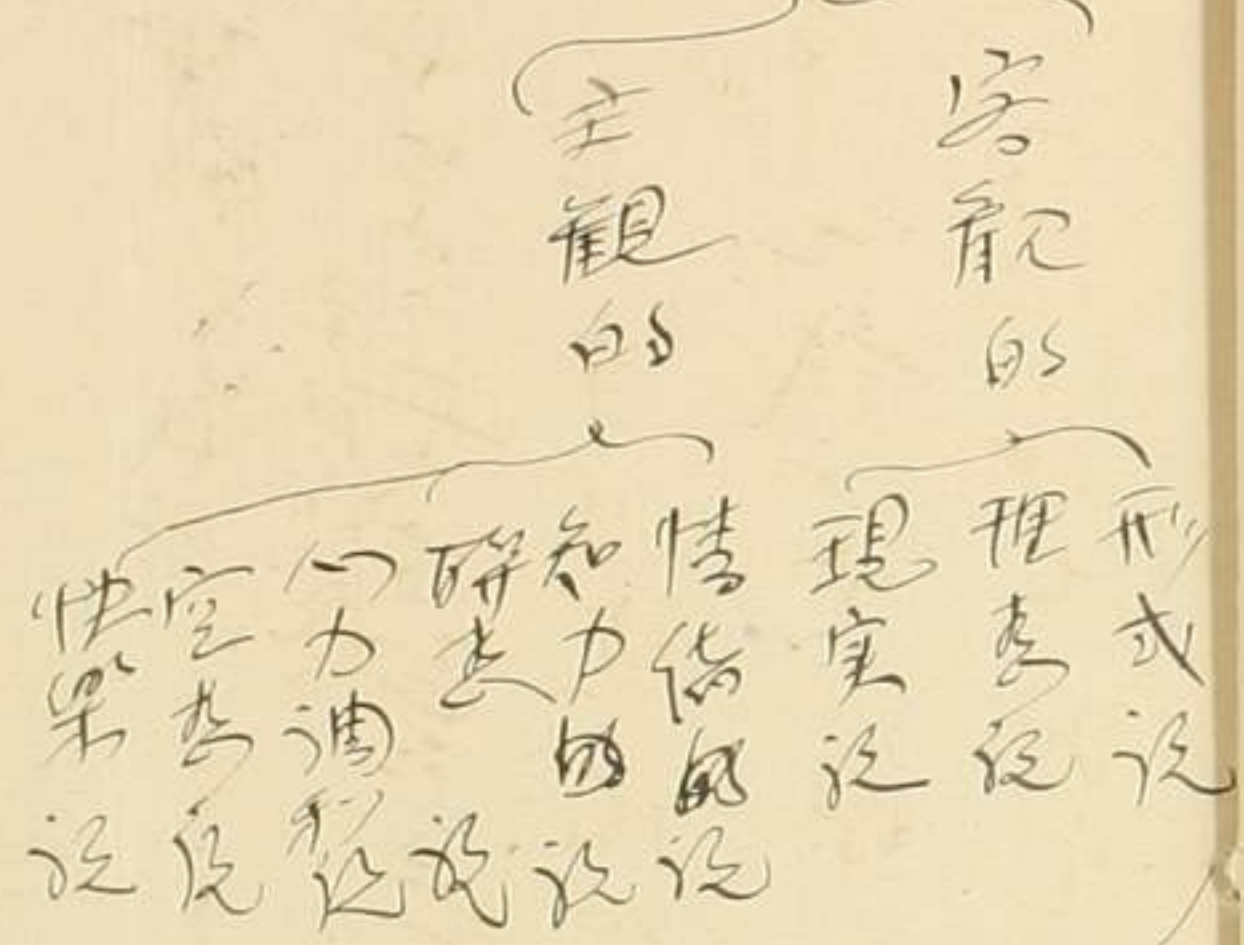 客観的
主観的
形式説
理想説
現実説
情緒的説
知力的説
聯想説
心力調和説
空想説
快楽説